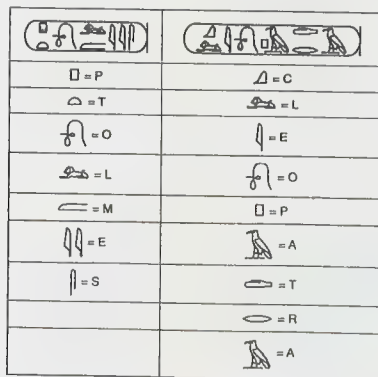 = P = C
= T = L
= O = E
= L = O
= M = P
= E = A
= S = T
= R
= A